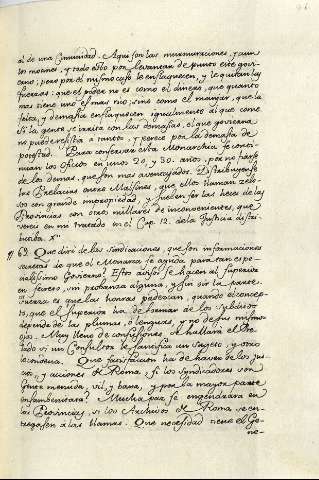 al de una Comunidad. Aqui son las murmuraciones, y aun
los motines, y todo esto por levantar de punto este govi-
erno; pero por el mismo caso le enflaquecen, y le quitan las
fuerzas: que el poder no es como el dinero, que quanto
mas tiene uno el mas rico, sino como el manjar, que la
falta, y demasia enflaquecen igualmente al que come
Si la gente se irrita con las demasias, el que govierna
no puede resistir a tantos, y perece por la demasia de
potestad. Para conservar esta Monarchia se conti-
nuan los oficios en unos 20, y 30. años, por no fiarse
de los demas, que son mas aventajados. Distribuyense
las Prelacias entre
con grande impropiedad, y suelen ser las heces de las
Provincias con otros millares de inconvenientes, que
verás en mi tratado en el Cap. 12. de la Justicia distri-
butiva. X.
¶ 63. Que diré de las sindicaciones, que son informaciones
secretas de que el Monarca se ayuda para tan espe-
nosissimo govierno? Estos avisos se hacen al superior
en secreto, sin probanza alguna, y sin oir la parte.
fuerza es que las honras padezcan, quando el concep-
to, que el superior ha de formar de los subditos
depende de las plumas, o lenguas, y no de sus mismos
ojos. Muy lleno de confusiones se hallara el Pre-
lado si un Consultor le santifica un sugeto, y otro
le condena. Que satisfaccion ha de haver de los jui-
cios, y acciones de Roma, si los sindicadores son
gente menuda, vil, y baxa, y por la mayor parte
Mucha paz se engendrará en
las Provincias, si los Archivos de Roma, se en-
tregasen a las llamas. Que necesidad tiene el Ge-
ne-